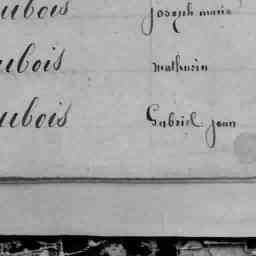 ubois Joseph marie
ubois mathurin
ubois Gabriel jean